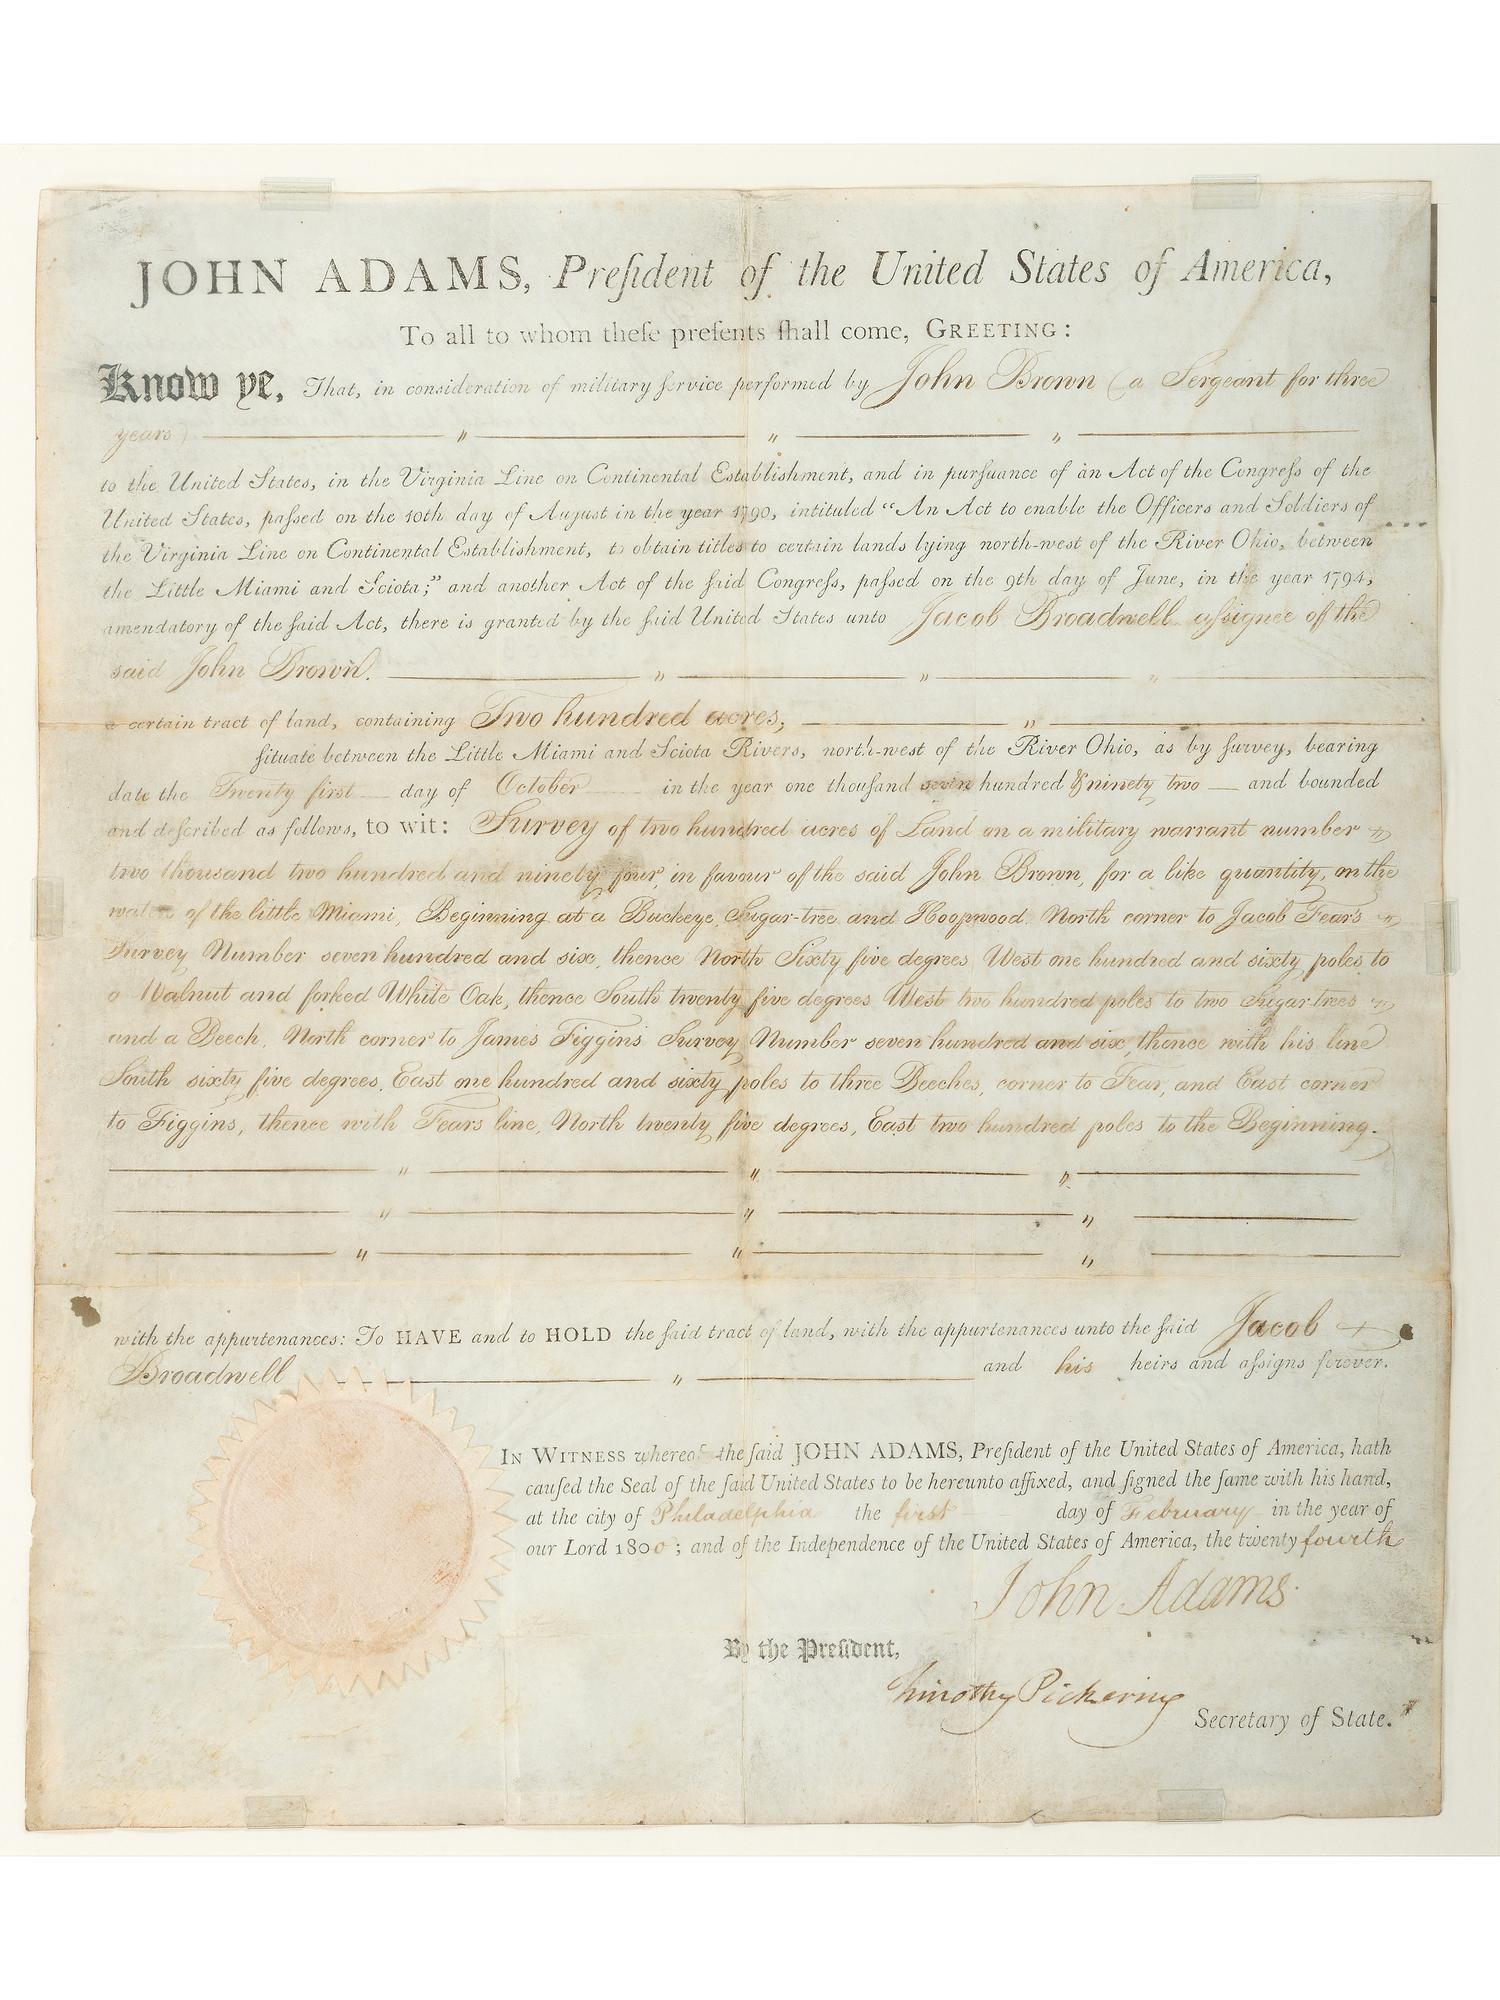 JOHN ADAMS, Preſident of the United States of America,
To all to whom theſe preſents ſhall come, GREETING:
Know ye, That, in conſideration of military ſervice performed by John Brown (a Sergeant for three
years) " " "
to the United States, in the Virginia Line on Continental Establishment, and in purſuance of an Act of the Congreſs of the
United States, paſsed on the 10th day of August in the year 1790, intituled “An Act to enable the Officers and Soldiers of
the Virginia Line on Continental Establishment, to obtain titles to certain lands lying north-west of the River Ohio, between
the Little Miami and Sciota;” and another Act of the ſaid Congreſs, paſsed on the 9th day of June, in the year 1794,
amendatory of the ſaid Act, there is granted by the ſaid United States unto Jacob Broadwell aſsignee of the
said John Brown. " " "
a certain tract of land, containing Two hundred acres, "
ſituate between the Little Miami and Sciota Rivers, north-west of the River Ohio, as by ſurvey, bearing
date the Twenty first day of October in the year one thouſand seven hundred & ninety two and bounded
and deſcribed as follows, to wit: Survey of two hundred acres of Land on a military warrant number
two thousand two hundred and ninety four, in favour of the said John Brown, for a like quantity, on the
waters of the little Miami, Beginning at a Buckeye, Sugar-tree and Hoopwood North corner to Jacob Fears
Survey Number seven hundred and six, thence North Sixty five degrees West one hundred and sixty poles to
a Walnut and forked White Oak, thence South twenty five degrees West two hundred poles to two Sugar-trees
and a Beech, North corner to James Figgins Survey Number seven hundred and six, thence with his line
South sixty five degrees, East one hundred and sixty poles to three Beeches, corner to Fear, and East corner
to Figgins, thence with Fears line, North twenty five degrees, East two hundred poles to the Beginning.
" " "
" " "
" " "
with the appurtenances: To HAVE and to HOLD the ſaid tract of land, with the appurtenances unto the ſaid Jacob
Broadwell " and his heirs and aſsigns forever.
IN WITNESS whereof the ſaid JOHN ADAMS, Preſident of the United States of America, hath
cauſed the Seal of the ſaid United States to be hereunto affixed, and ſigned the ſame with his hand,
at the city of Philadelphia the first day of February in the year of
our Lord 1800; and of the Independence of the United States of America, the twenty fourth
John Adams.
By the Preſident,
Timothy Pickering
Secretary of State.